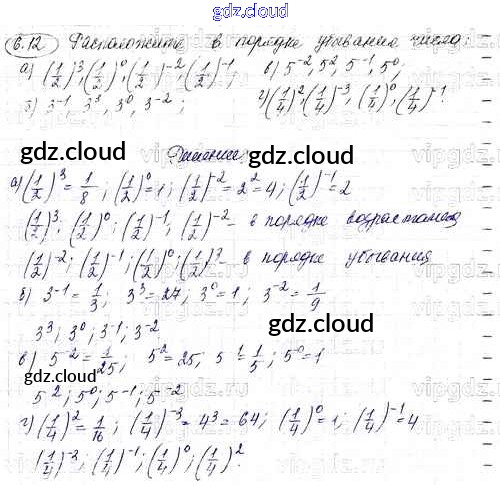 gdz.cloud
6.12 Расположите в порядке убывания числа:
а) (1/2)^3, (1/2)^0, (1/2)^-2, (1/2)^-1; в) 5^-2, 5^2, 5^-1, 5^0;
б) 3^-1, 3^3, 3^0, 3^-2; г) (1/4)^2, (1/4)^-3, (1/4)^0, (1/4)^-1.
gdz.cloud gdz.cloud
Решение:
а) (1/2)^3 = 1/8; (1/2)^0 = 1; (1/2)^-2 = 2^2 = 4; (1/2)^-1 = 2
(1/2)^3; (1/2)^0; (1/2)^-1; (1/2)^-2 - в порядке возрастания
(1/2)^-2; (1/2)^-1; (1/2)^0; (1/2)^3 - в порядке убывания
б) 3^-1 = 1/3; 3^3 = 27; 3^0 = 1; 3^-2 = 1/9
gdz.cloud
3^3; 3^0; 3^-1; 3^-2
в) 5^-2 = 1/25; 5^2 = 25, 5^-1 = 1/5; 5^0 = 1
gdz.cloud
5^2; 5^0; 5^-1; 5^-2
г) (1/4)^2 = 1/16; (1/4)^-3 = 4^3 = 64; (1/4)^0 = 1; (1/4)^-1 = 4
(1/4)^-3; (1/4)^-1; (1/4)^0; (1/4)^2.
gdz.cloud